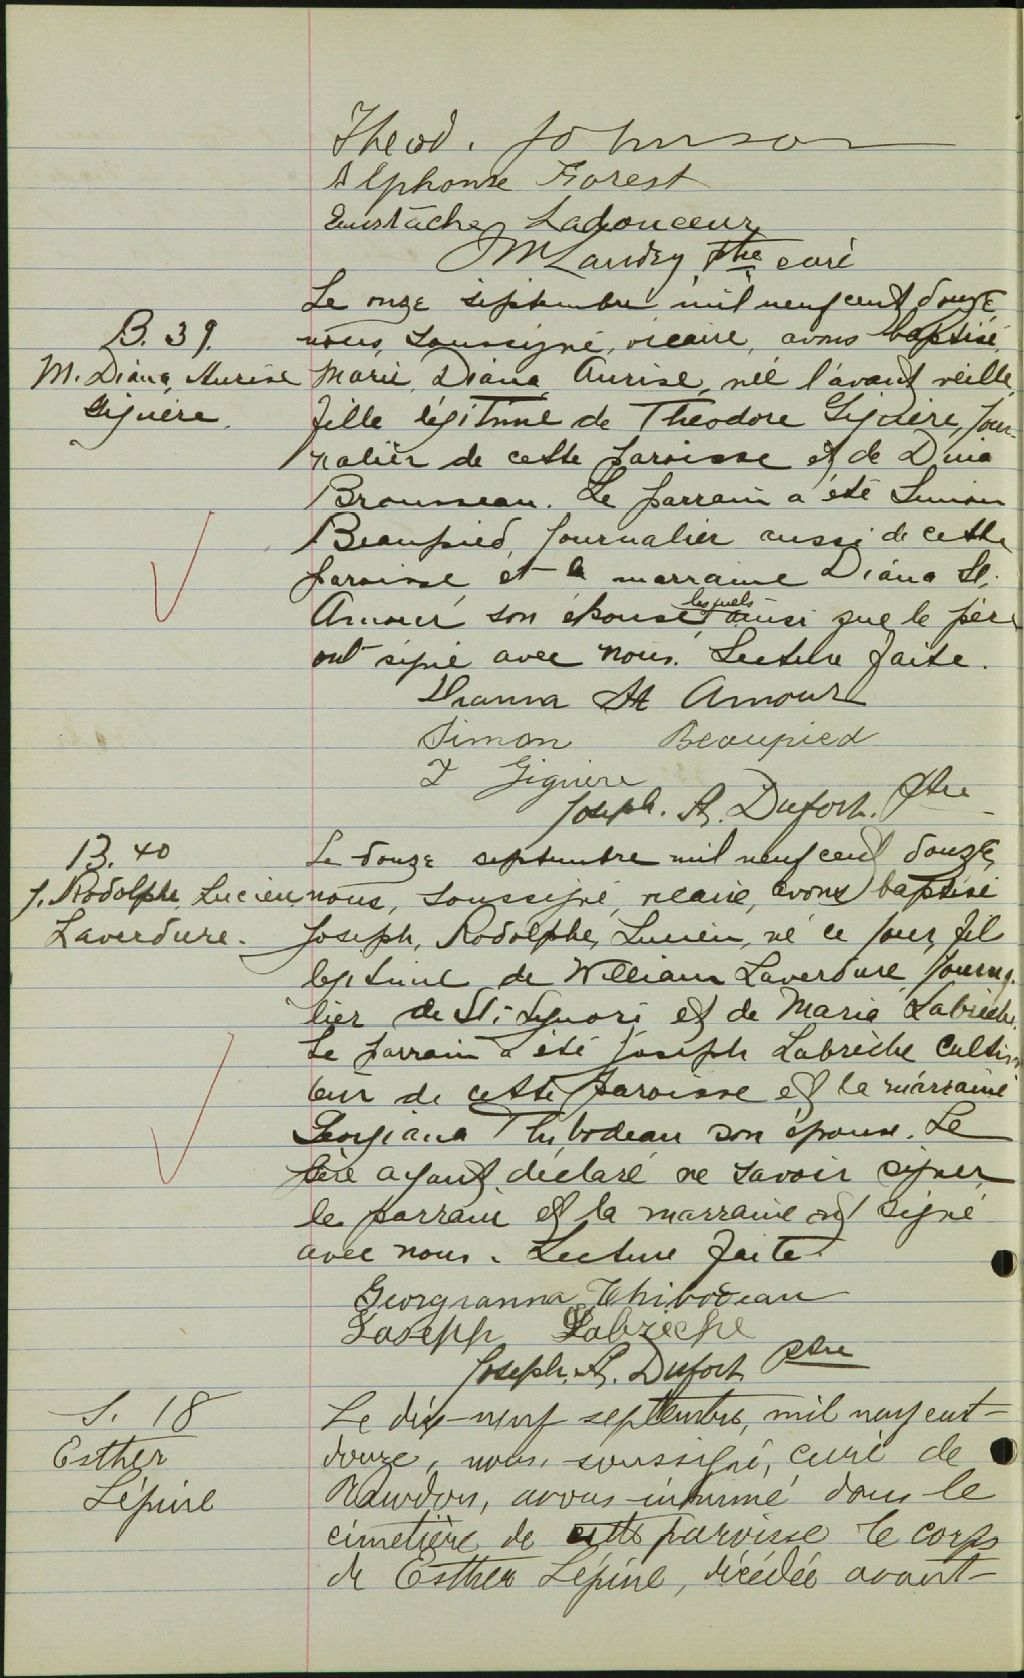 Theod. Johnson
Alphonse Forest
Eustache Ladouceur
M Landry Ptre curé
B. 39.
M. Diana, Aurise
Giguère.
Le onze septembre mil neuf cent douze
nous, soussigné, vicaire, avons baptisé
Marie, Diana Aurise, née l'avant veille
fille légitime de Theodore Giguère, jour-
nalier de cette paroisse et de Dina
Brousseau. Le parrain a été Simon
Beaupied, journalier aussi de cette
paroisse et la marraine Diana St.
Amour son épouse lesquels ainsi que le père
ont signé avec nous. Lecture faite.
Dianna St Amour
Simon Beaupied
T Giguere
Joseph. A. Dufort. Ptre
B. 40
J. Rodolphe, Lucien
Laverdure.
Le douze septembre mil neuf cent douze,
nous, soussigné, vicaire, avons baptisé
Joseph, Rodolphe, Lucien, né ce jour, fil
legitime de William Laverdure, journa-
lier de St. Liguori et de Marie Labrèche.
Le parrain a été Joseph Labrèche cultiva
teur de cette paroisse et la marraine
Georgiana Thibodeau son épouse. Le
père ayant déclaré ne savoir signer
le parrain et la marraine ont signé
avec nous. Lecture faite.
Georgianna Thibodeau
Joseph Labrèche
Joseph. A. Dufort Ptre
S. 18
Esther
Lépine
Le dix-neuf septembre, mil neuf cent-
douze, nous, soussigné, curé de
Rawdon, avons inhumé dans le
cimetière de cette paroisse le corps
de Esther Lépine, décédée avant-